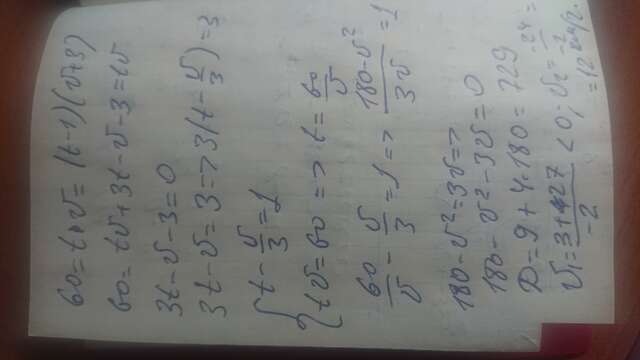 60 = t·v = (t-1)(v+3)
60 = tv+3t-v-3 = tv
3t-v-3=0
3t-v=3 => 3(t-v/3)=3
{ t-v/3=1
tv=60 => t=60/v
60/v - v/3 = 1 => (180-v²)/3v = 1
180-v²=3v =>
180-v²-3v=0
D=9+4·180=729
v₁=(3+27)/-2 <0; v₂=-24/-2 =
=12 км/г.